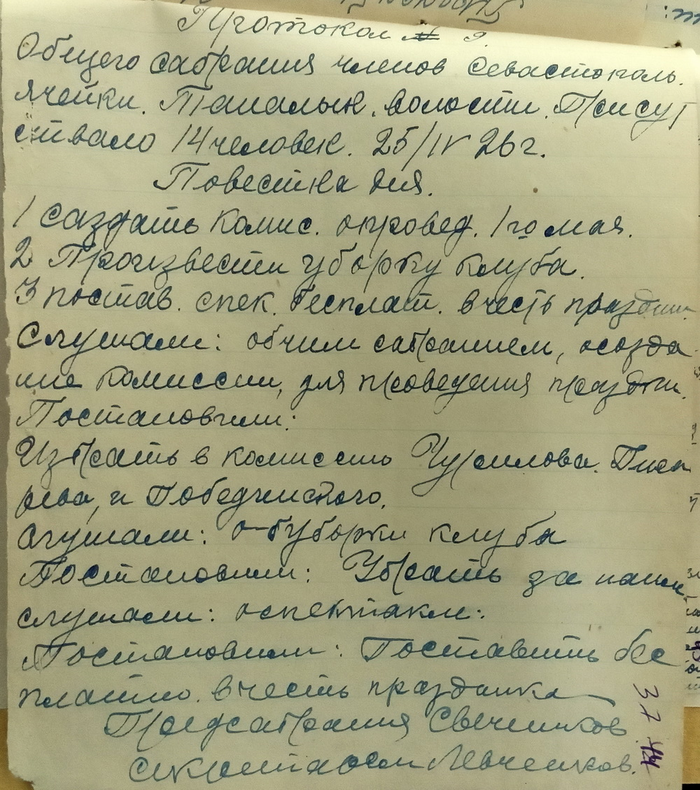 Протокол № 9.
Общего сабрания членов Севастополь.
ячейки. Таналык. волости. Присут
ствало 14 человек. 25/IV 26 г.
Повестка дня.
1 саздать комис. опровед. 1го мая.
2 Произвести уборку клуба.
3 постав. спек. бесплат. вчесть праздни
Слушали: обчим сабранием, осозда
ние комиссии, для проведения праздн.
Постановили:
Избрать в комиссию Чурилова.
и Победчиского.
слушали: о-буборки клуба
Постановили: Убрать за
слушали: оспектакли:
Постановили: Поставить бес
платно. вчесть праздника
Предсабрания Свечников
Секретарем Левченков.
37